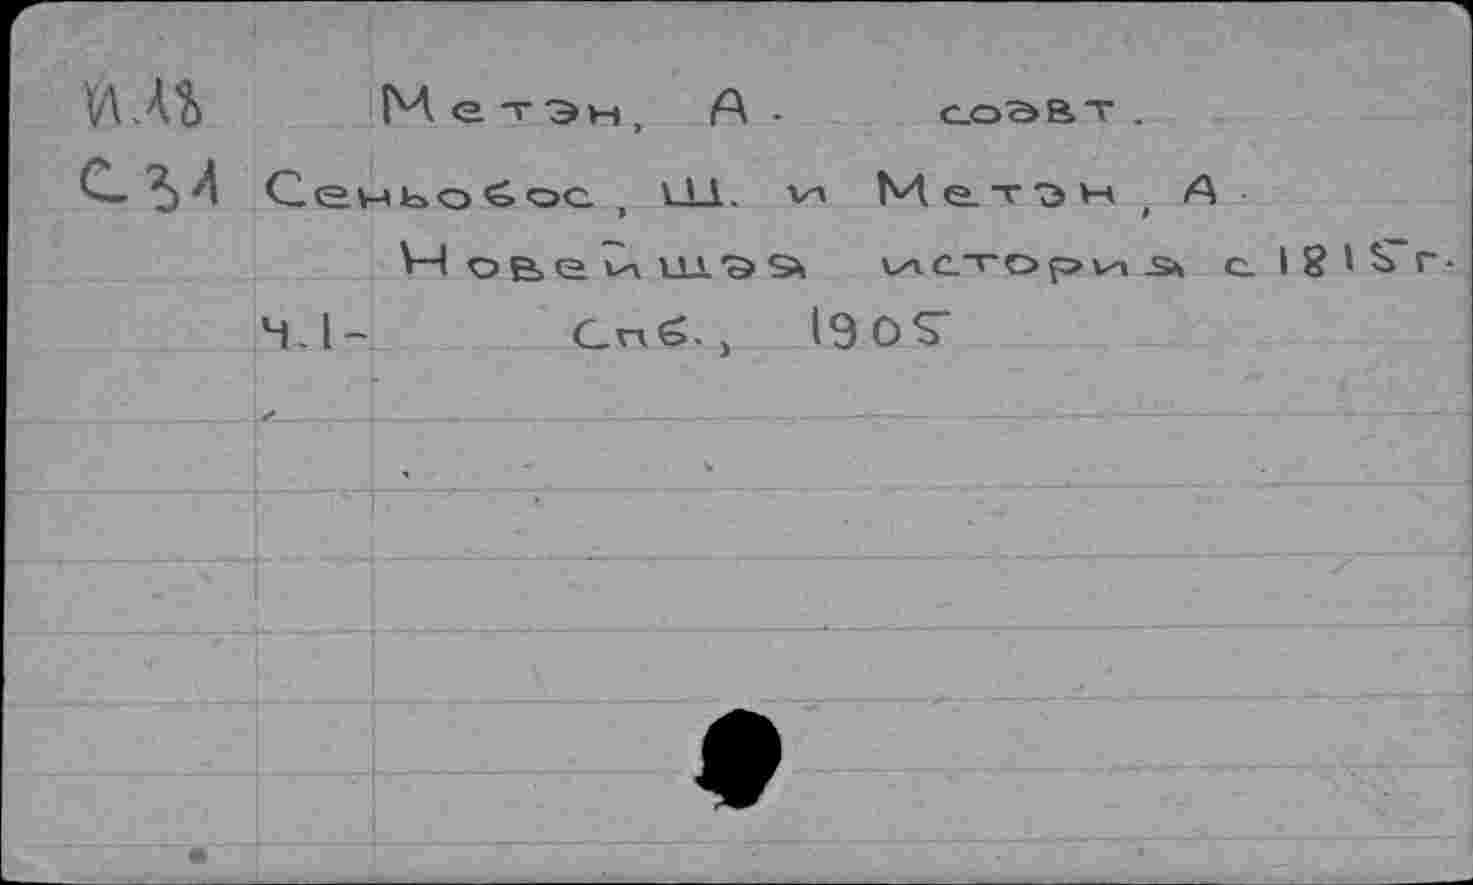 Метэн, А. соавт.
С31 Сеньобос, Ш. и Метэн, А
Новейшая история с 1815г.
Ч.1- Спб., 1905